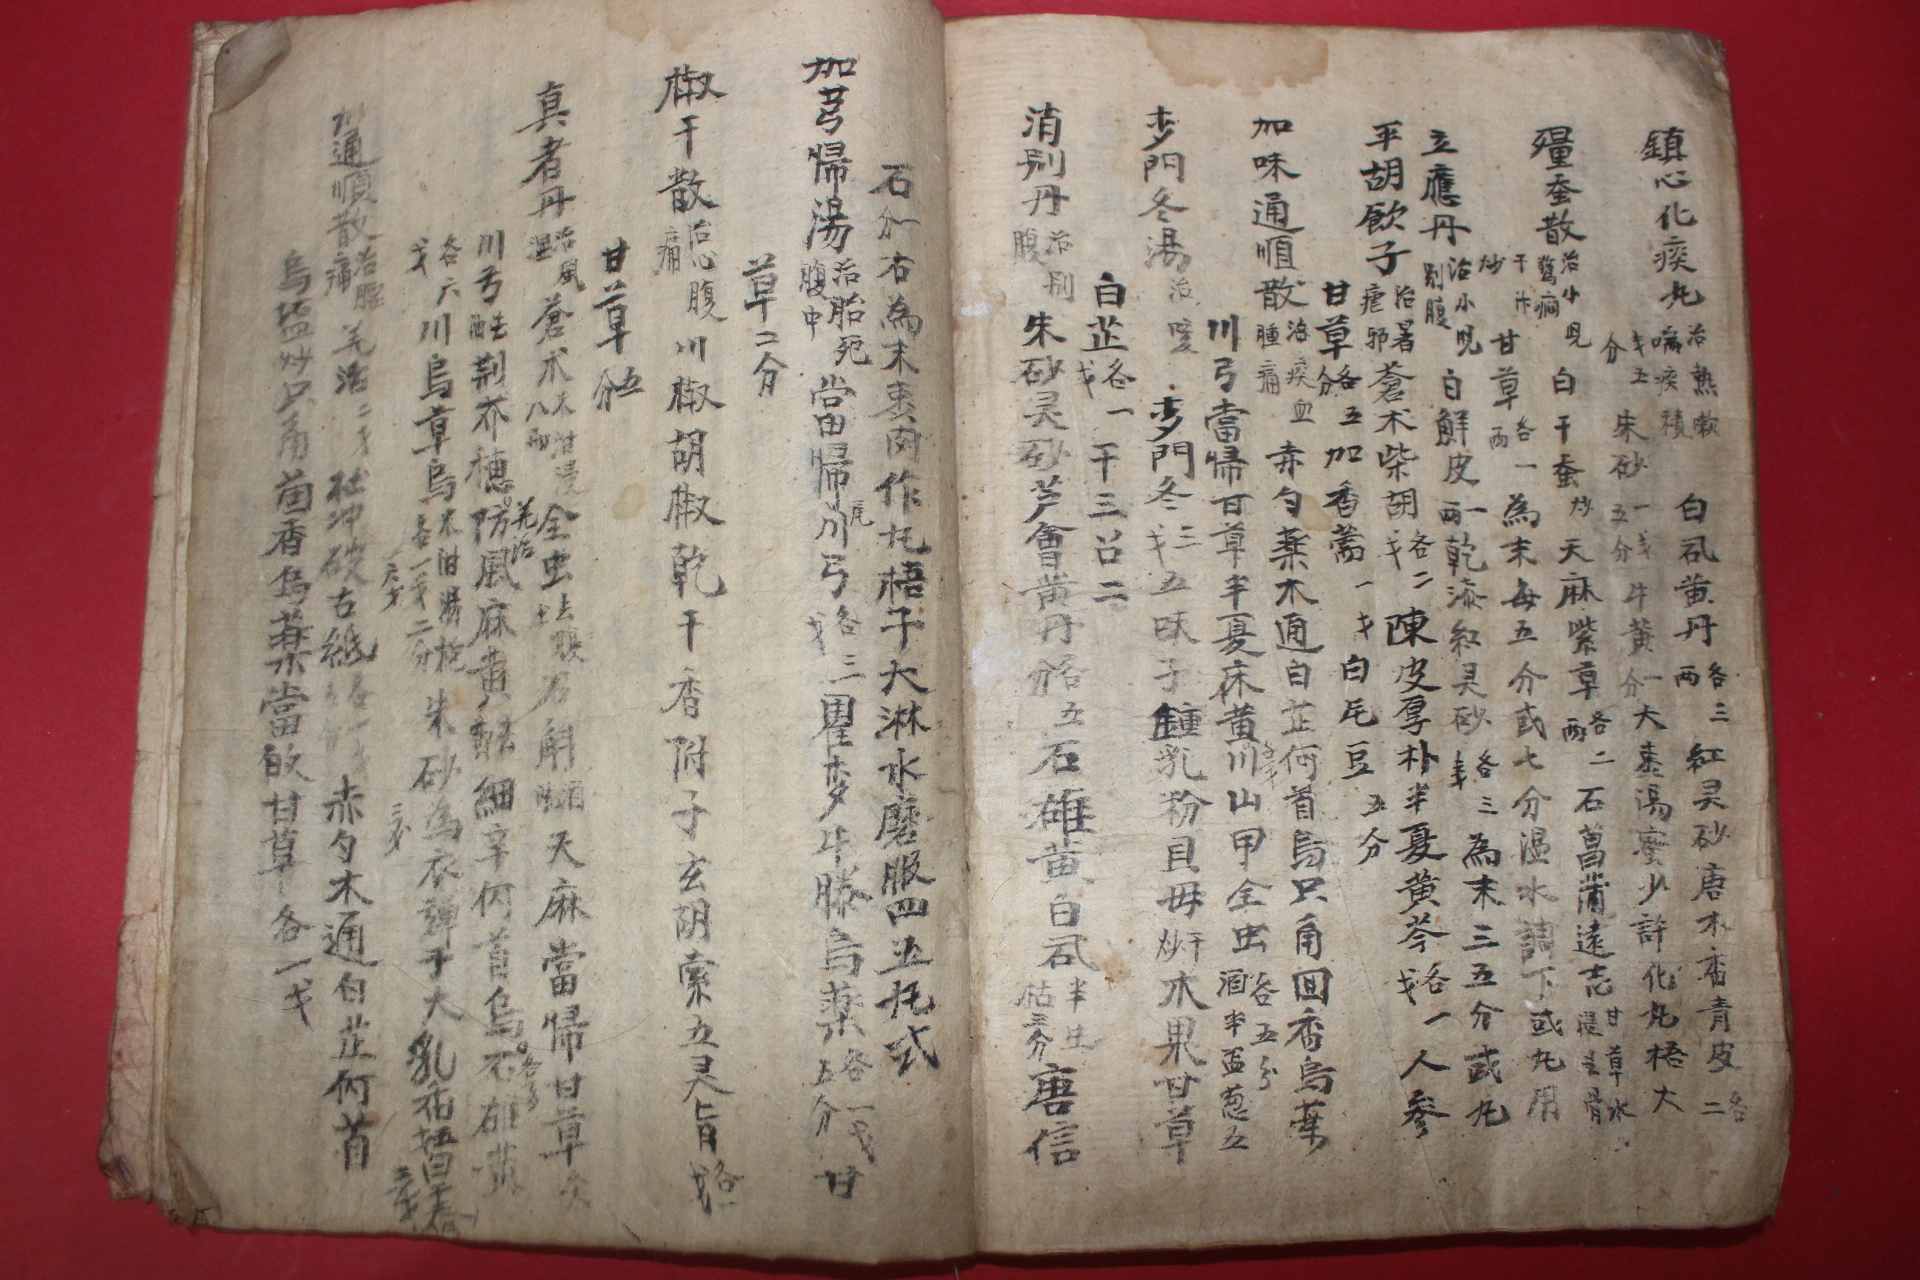 鎮心化痰丸 治熱嗽喘痰積 白礬黃丹 各三兩 紅灵砂唐木香青皮 各二
戈五分 朱砂 一戈五分 牛黃 一分 大棗湯蜜少許化丸梧大
殭蚕散 治小児驚癇 白干蚕 炒 天麻紫草 各二兩 石菖蒲遠志 甘草水浸去骨
干汁炒 甘草 各一兩 為末每五分或七分温水調下或丸用
立應丹 治小児別腹 白鮮皮 一兩 乾漆紅灵砂 各三戈 為末三五分或丸
平胡飲子 治暑瘧邪 蒼朮柴胡 各二戈 陳皮厚朴半夏黃芩 各一戈 人参
甘草 各五分 加香薷 一戈 白扁豆 五分
加味通順散 治痰血腫痛 赤勺藥木通白芷何首烏只角回香烏藥
川弓當帰甘草半夏 床黃川山甲全虫 各五分 酒半盃葱五
麥門冬湯 治嗄 麥門冬 三戈 五味子鍾乳粉貝毋 干炒 木果甘草
白芷 各一戈 干三召二
消別丹 治別腹 朱砂灵砂芦會黃丹 各五分 石雄黃白礬 半生半枯三分 唐信
石 分 右為末棗肉作丸梧子大淋水磨服四五丸式
加芎帰湯 治胎死腹中 當帰 尾 川弓 各三戈 瞿麥牛膝烏藥 各一戈五分 甘
草 二分
椒干散 治心腹痛 川椒胡椒乾干香附子玄胡索五灵旨 各一戈
甘草 五分
真者丹 治風湿 蒼朮 米泔浸八兩 羌活 全虫 去頭 石斛 酒 天麻當帰甘草灸
川芎 醋 荆芥穗防風麻黃醋細辛何首烏石雄黃
各六戈 川烏草烏 米泔湯 各一戈二分 朱砂為衣彈子大乳
加通順散 治腫痛 羌活 二戈 杜冲破古紙 各一戈 赤勺木通白芷何首
烏塩炒只角茴香烏藥當故甘草 各一戈